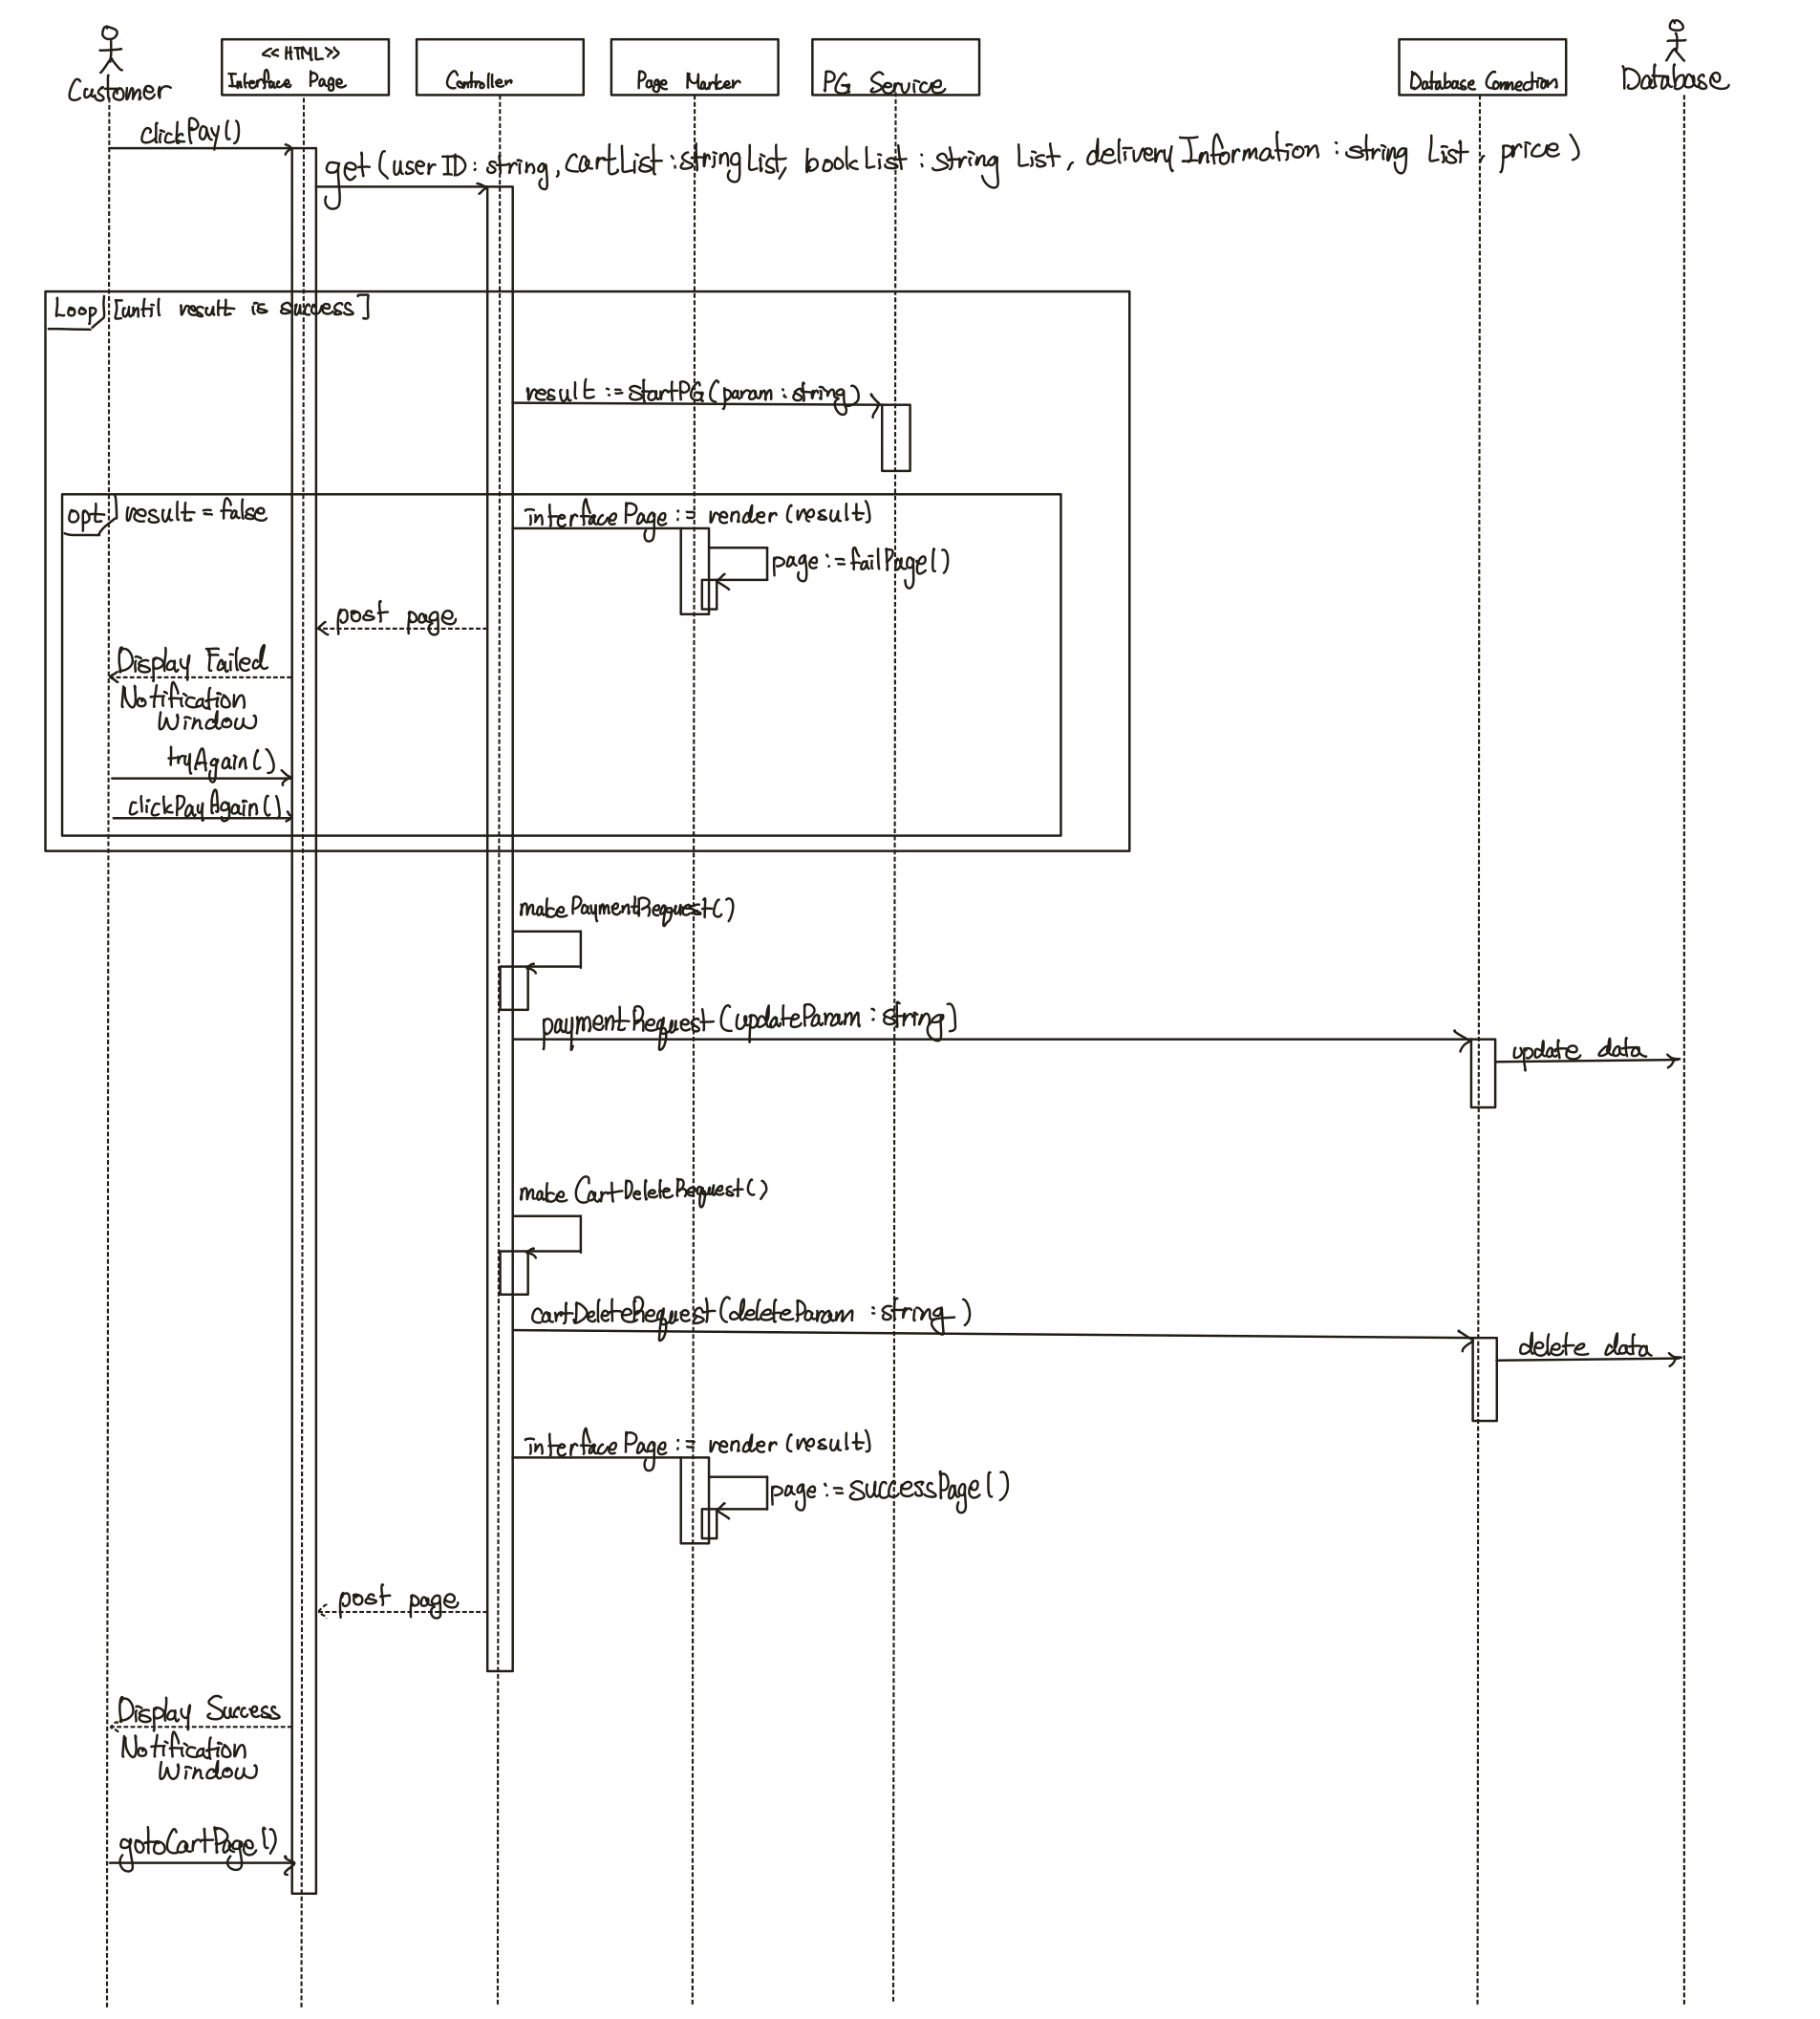 Customer
<< HTML >>
Interface Page
Controller
Page Marker
PG Service
Database Connection
Database
clickPay()
get(userID : string, cartList : string List, bookList : string List, deliveryInformation : string List, price)
Loop [until result is success]
result := startPG(param : string)
opt result = false
interfacePage := render(result)
page := failPage()
post page
Display Failed
Notification
Window
tryAgain()
clickPayAgain()
makePaymentRequest()
paymentRequest(updateParam : string)
update data
makeCartDeleteRequest()
cartDeleteRequest(deleteParam : string)
delete data
interfacePage := render(result)
page := successPage()
post page
Display Success
Notification
Window
gotoCartPage()